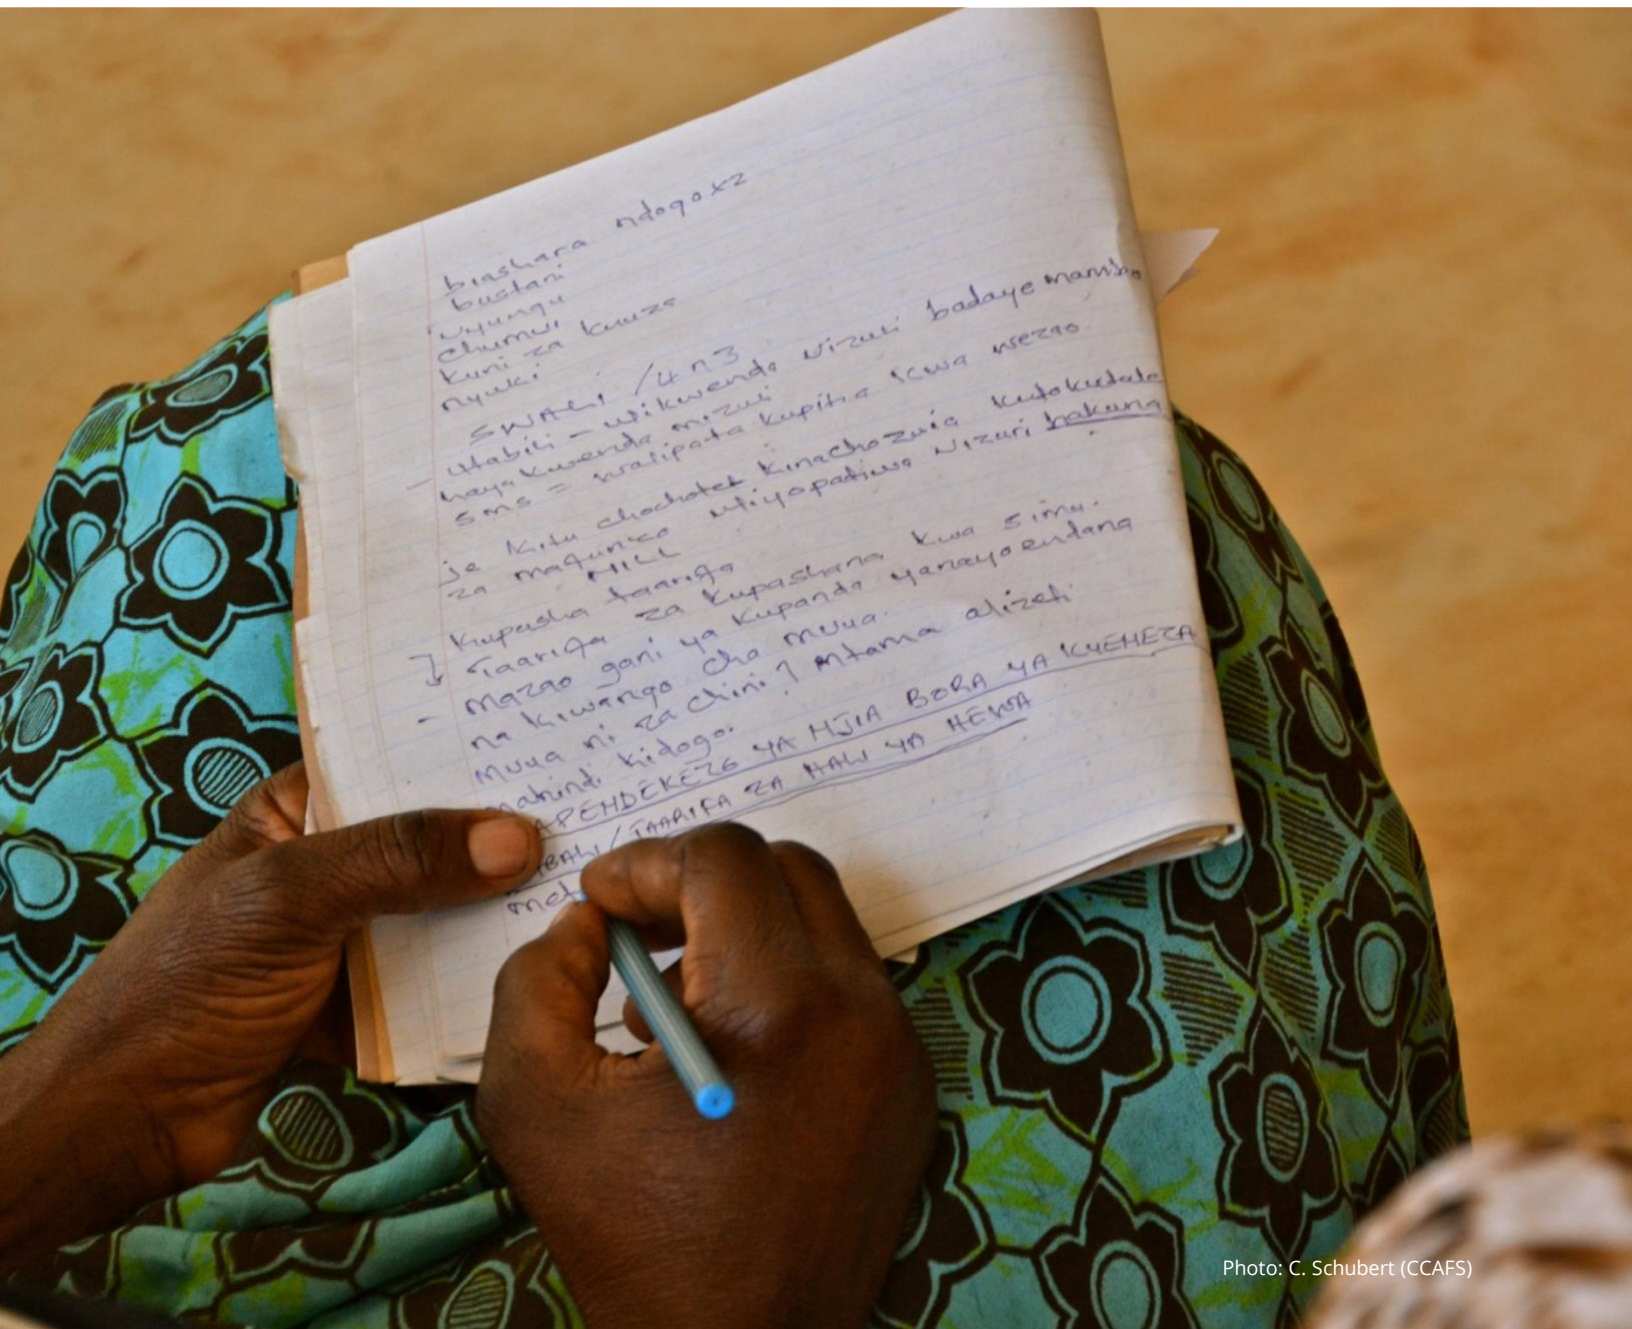 biashara ndogo x2
bustani
Nyungu
chumvi
kuni za kuuza
nyuki
SWALI / 4 n 3
- utabili - ulikwenda vizuri badaye mambo
haya kwenda mizuri
sms = walipata kupitia kwa wezao
je kitu chochote kinachozuia kutokutale
za mafunzo uliyopatiwa vizuri hakuna
HILL
Kupasha taarifa
Taarifa za kupashana kwa simu.
- mazao gani ya kupanda yanayoendana
na kiwango cha mvua.
mvua ni za chini mtama alizeti
mahindi kidogo.
APENDEKEZO YA NJIA BORA YA KUENEZA
/ TAARIFA ZA HALI YA HEWA
Photo: C. Schubert (CCAFS)